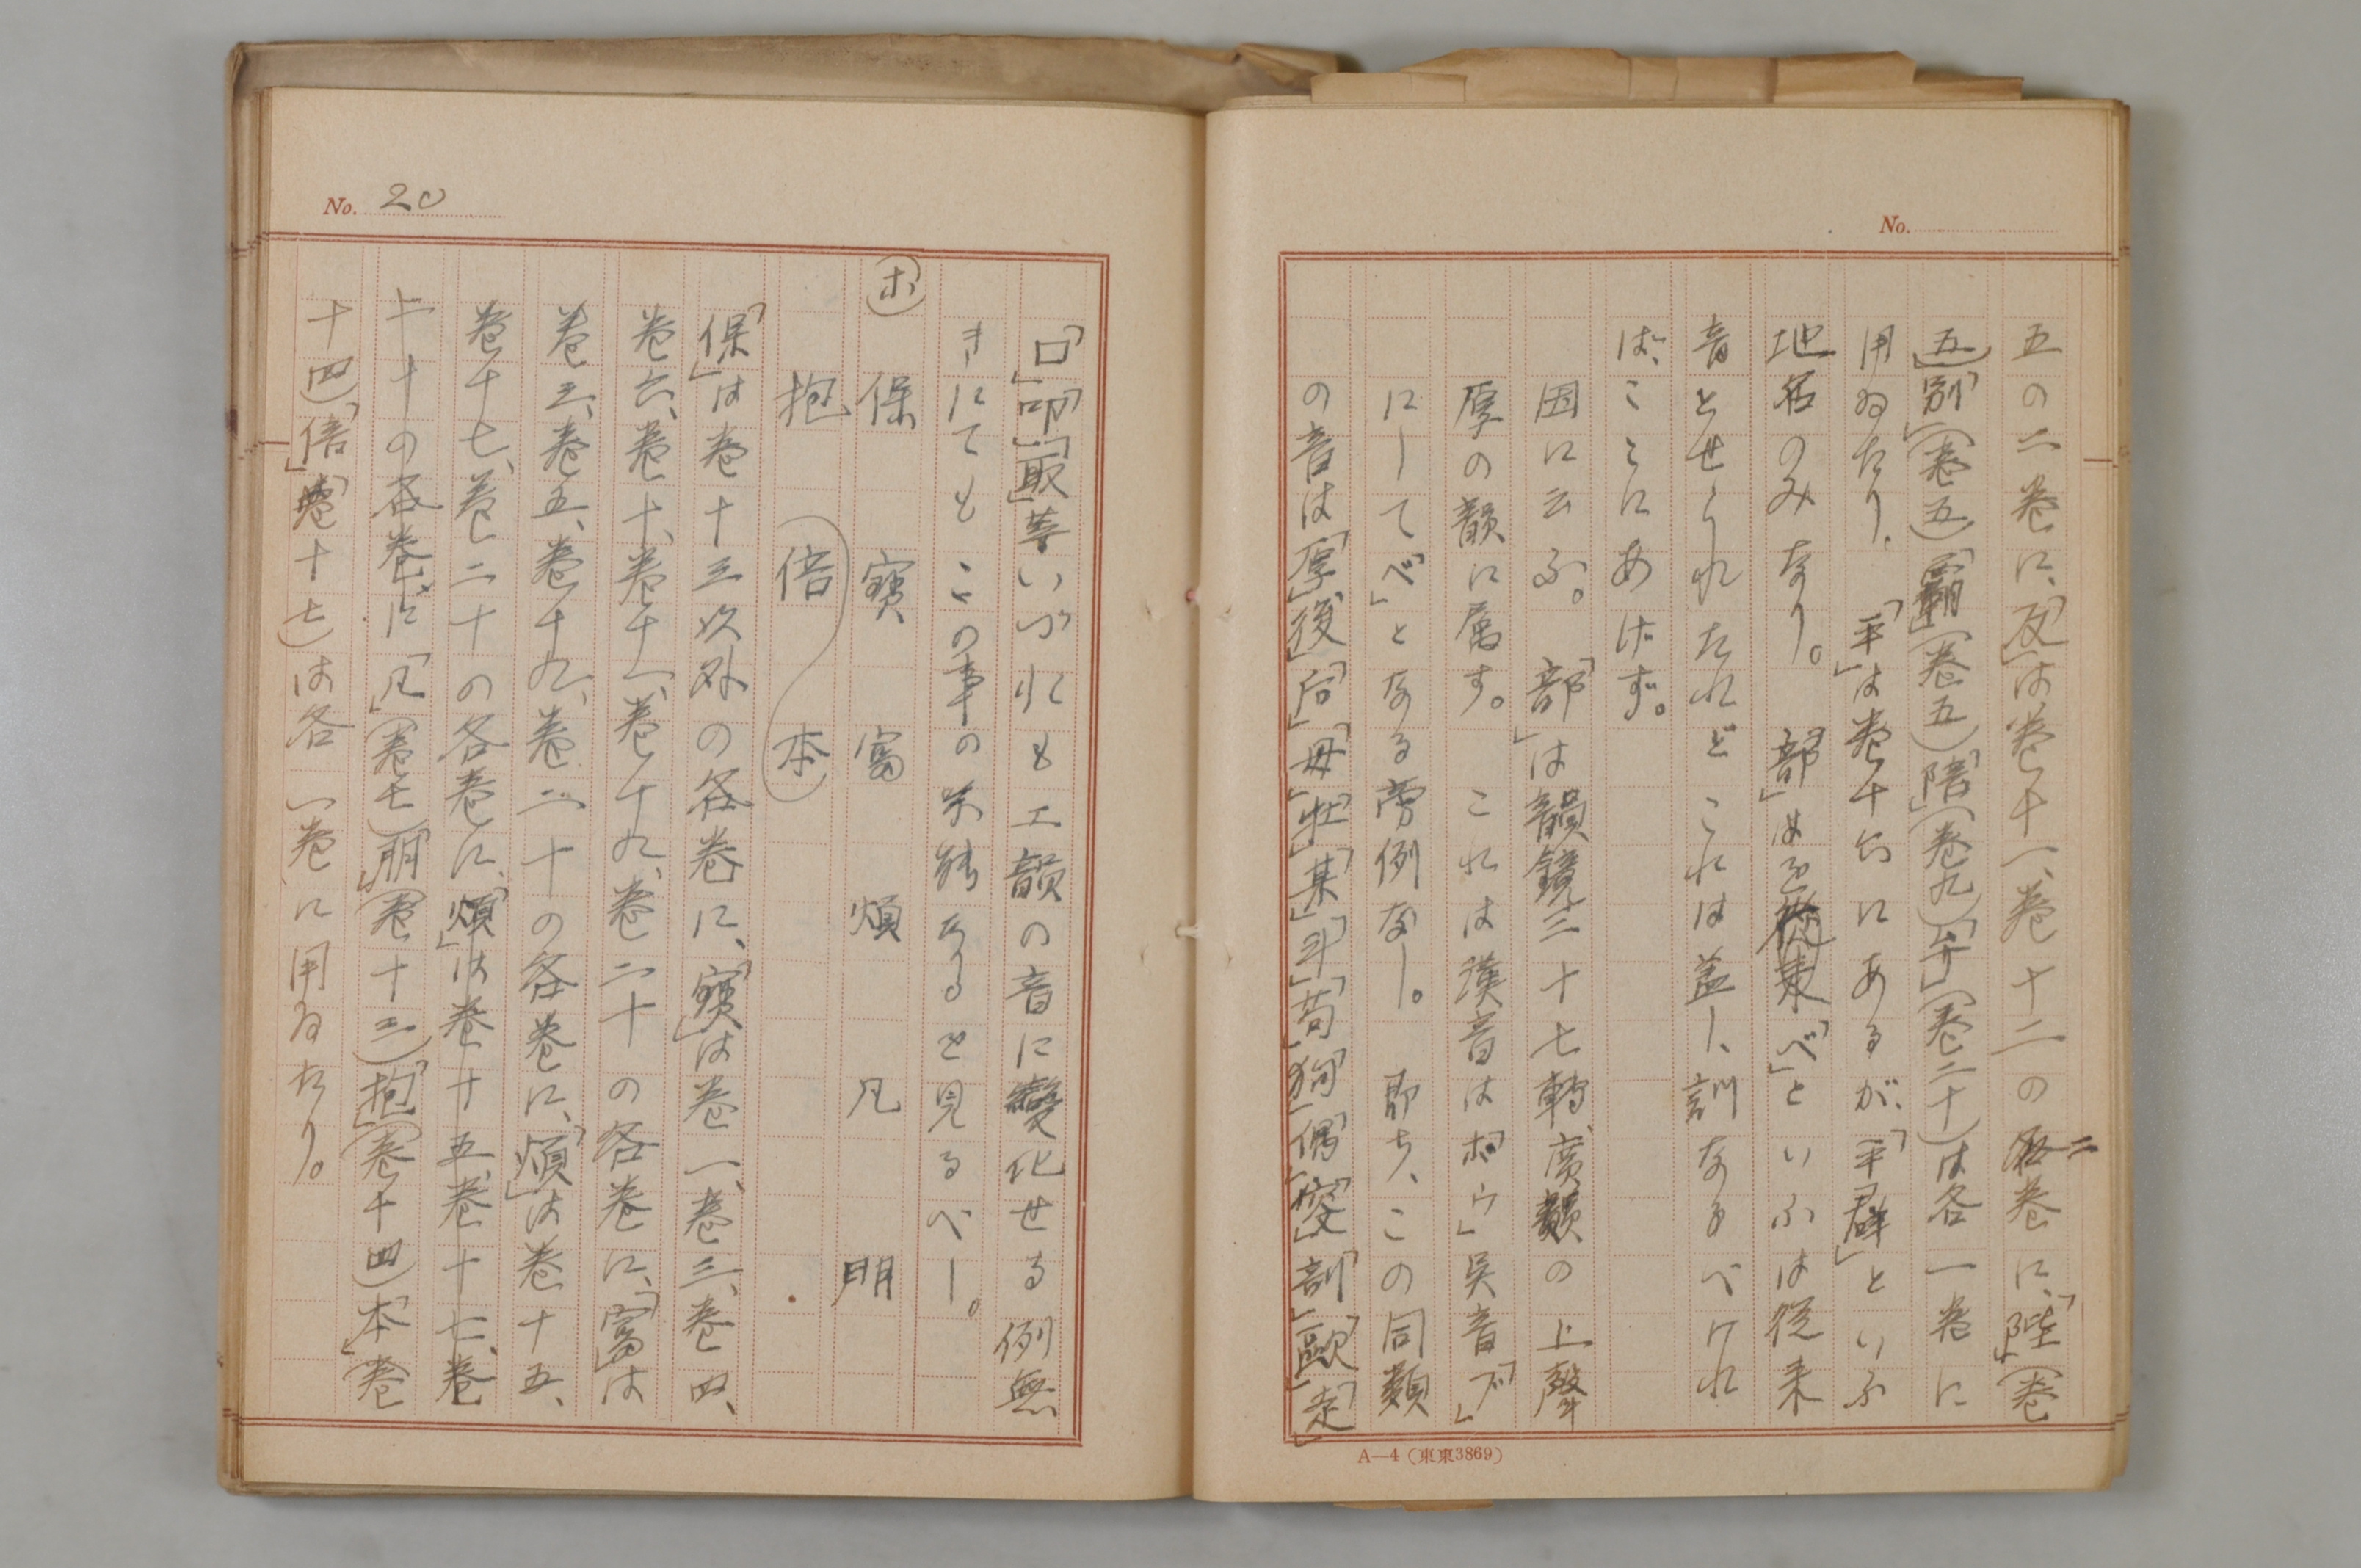 No.
五の二巻に、「反」は巻十一、巻十二の二巻に、「陛」(巻
五)「別」(巻五)「覇」(巻五)「陪」(巻九)「弁」(巻二十)は各一巻に
用ゐたり。「平」は巻十六にあるが、「平群」といふ
地名のみなり。「部」は従来「べ」といふは従来
音とせられたれどこれは蓋し、訓なるべけれ
ば、ここにあげず。
因に云ふ。「部」は韻鏡三十七轉廣韻の上聲
厚の韻に属す。これは漢音は「ボウ」呉音「ブ」
にして「べ」となる旁例なし。即ち、この同類
の音は「厚」「後」「后」「母」「牡」「某」「斗」「苟」「狗」「偶」「叜」「剖」「歐」「走」
A—4(東東3869)
No. 20
「口」「叩」「取」等いづれもエ韻の音に變化せる例無
きにてもこの事の異例なるを見るべし。
(ホ) 保 寶 富 煩 凡 朋
抱 倍 本
「保」は巻十三以外の各巻に、「寶」は巻一、巻三、巻四、
巻六、巻十、巻十一、巻十九、巻二十の各巻に、「富」は
巻三、巻五、巻十九、巻二十の各巻に、「煩」は巻十五、
巻十七、巻二十の各巻に、「煩」は巻十五、巻十七、巻
二十の各巻に「凡」(巻七)「朋」(巻十三)「抱」(巻十四)「本」(巻
十四)「倍」(巻十七)は各一巻に用ゐたり。